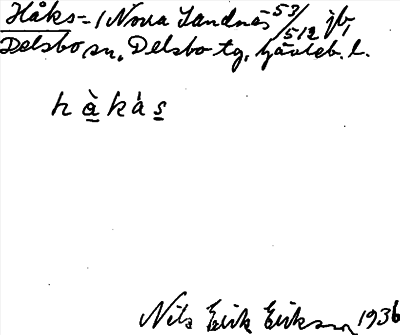 Håks= / Norra Sandnäs 53/512 jb,
Delsbo sn, Delsbo tg, Gävleb. l.
hàkás
Nils Erik Eriksson 1936